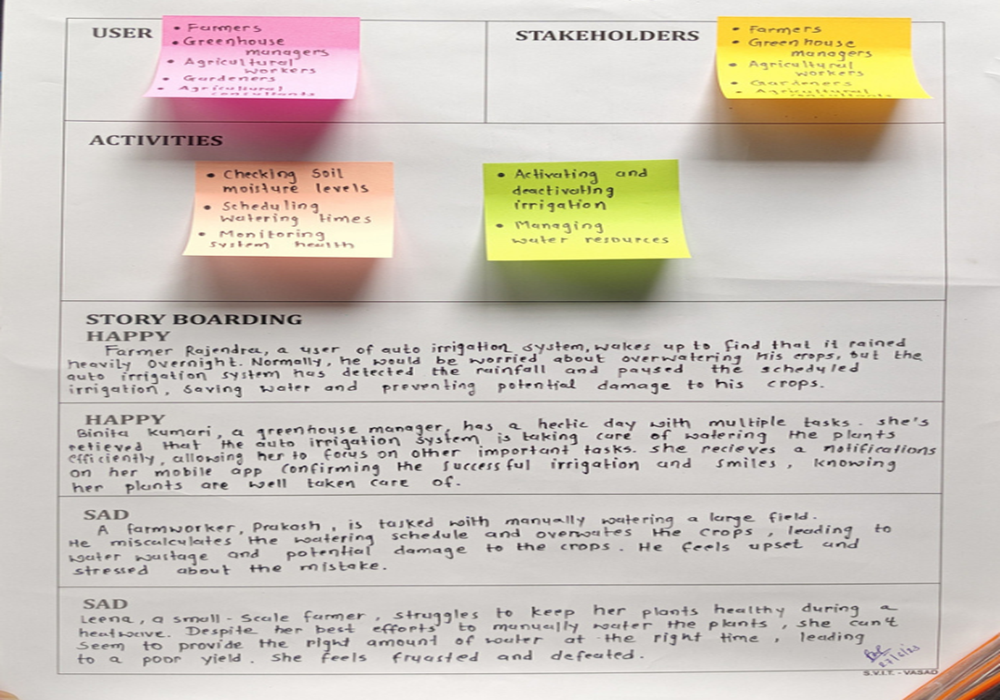 USER
• Farmers
• Greenhouse
managers
• Agricultural
workers
• Gardeners
• Agricultural
consultants
STAKEHOLDERS
• Farmers
• Greenhouse
managers
• Agricultural
workers
• Gardeners
• Agricultural
consultants
ACTIVITIES
• Checking Soil
moisture levels
• Scheduling
watering times
• Monitoring
system health
• Activating and
deactivating
irrigation
• Managing
water resources
STORY BOARDING
HAPPY
Farmer Rajendra, a user of auto irrigation system, wakes up to find that it rained
heavily overnight. Normally, he would be worried about overwatering his crops, but the
auto irrigation system has detected the rainfall and paused the scheduled
irrigation, saving water and preventing potential damage to his crops.
HAPPY
Binita Kumari, a greenhouse manager, has a hectic day with multiple tasks. she's
relieved that the auto irrigation system is taking care of watering the plants
efficiently, allowing her to focus on other important tasks. she recieves a notifications
on her mobile app confirming the successful irrigation and smiles, knowing
her plants are well taken care of.
SAD
A farmworker, Prakash, is tasked with manually watering a large field.
He miscalculates the watering schedule and overwates the crops, leading to
water wastage and potential damage to the crops. He feels upset and
stressed about the mistake.
SAD
Leena, a small-scale farmer, struggles to keep her plants healthy during a
heatwave. Despite her best efforts to manually water the plants, she can't
seem to provide the right amount of water at the right time, leading
to a poor yield. She feels fruasted and defeated.
S.V.I.T. - VASAD